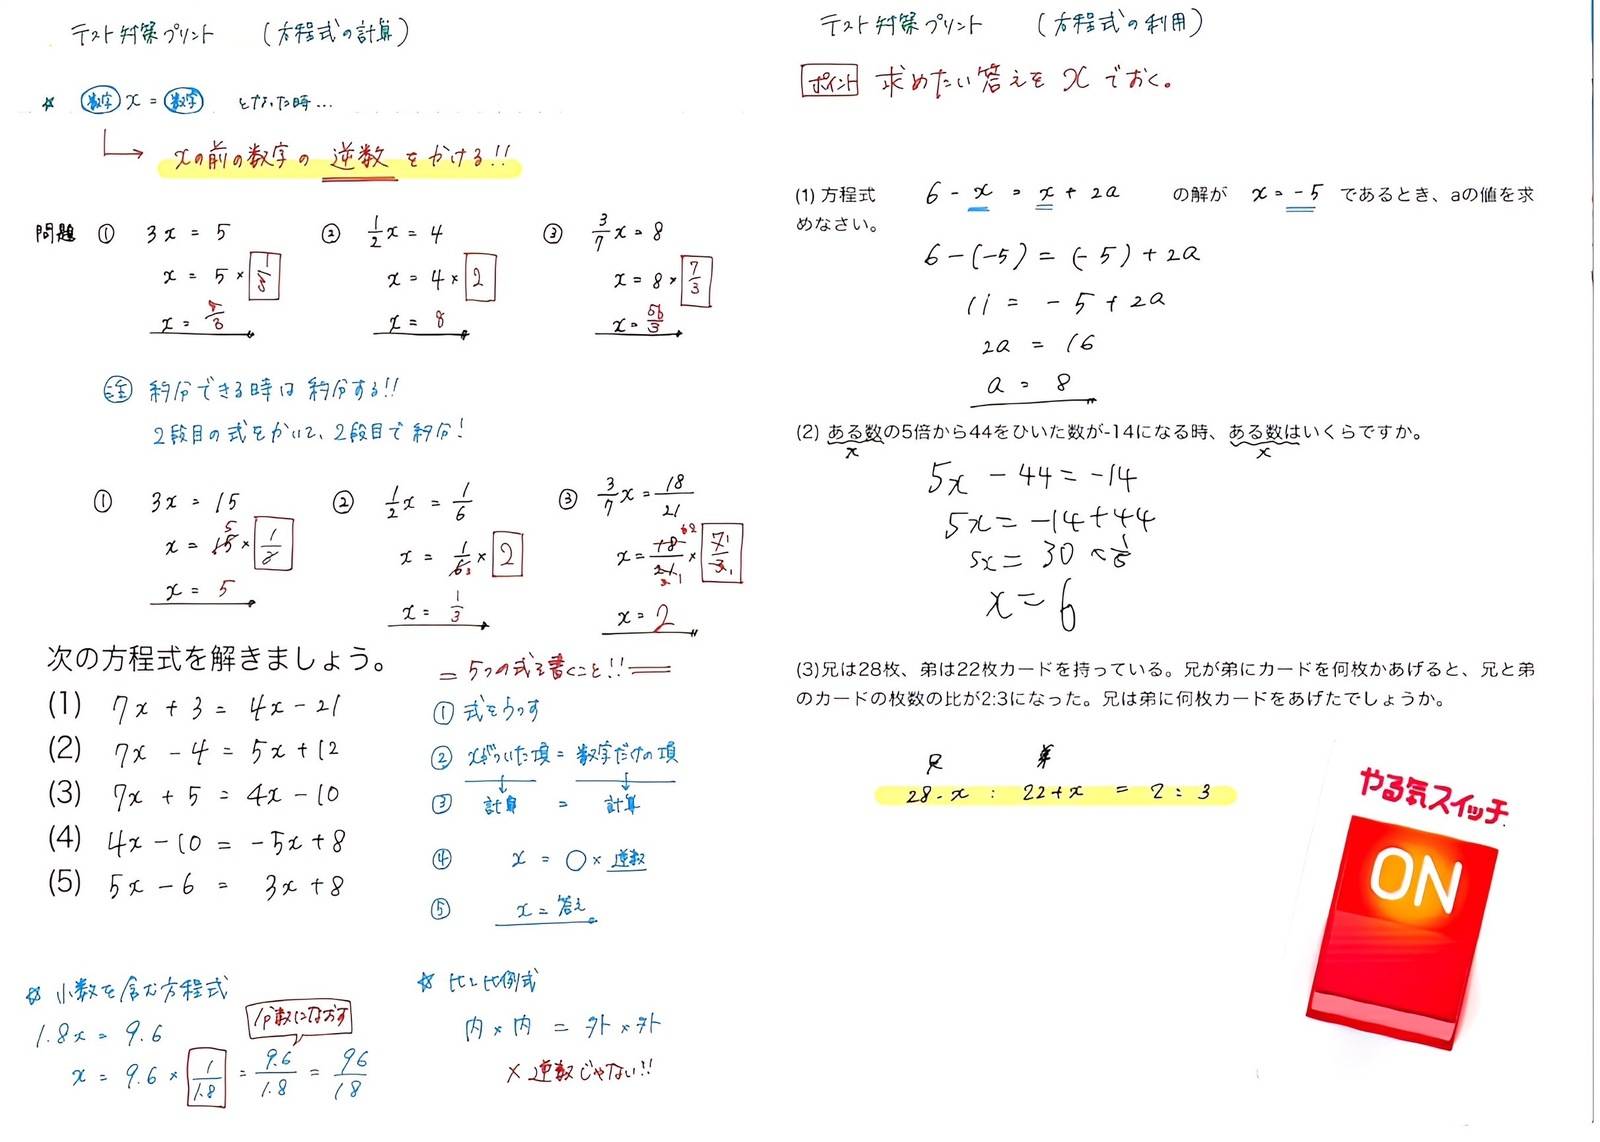 テスト対策プリント　（方程式の計算）
☆ 数字 x = 数字　となった時…
xの前の数字の 逆数 をかける!!
問題 ① 3x = 5　② 1/2 x = 4　③ 3/7 x = 8
x = 5 × 1/3　x = 4 × 2　x = 8 × 7/3
x = 5/3　x = 8　x = 56/3
注 約分できる時は 約分する!!
2段目の式をかいて、2段目で約分!
① 3x = 15　② 1/2 x = 1/6　③ 3/7 x = 18/21
x = 15 5 × 1/3　x = 1/6 3 × 2　x = 18/21 × 7/3
x = 5　x = 1/3　x = 2
次の方程式を解きましょう。
(1) 7x + 3 = 4x - 21
(2) 7x - 4 = 5x + 12
(3) 7x + 5 = 4x - 10
(4) 4x - 10 = -5x + 8
(5) 5x - 6 = 3x + 8
= 5つの式を書くこと!! =
① 式をうつす
② xがついた項 = 数字だけの項
③ 計算 = 計算
④ x = ○ × 逆数
⑤ x = 答え
☆ 小数を含む方程式
1.8x = 9.6
分数になおす
x = 9.6 × 1/1.8 = 9.6/1.8 = 96/18
☆ 比と比例式
内 × 内 = 外 × 外
× 逆数じゃない!!
テスト対策プリント　（方程式の利用）
ポイント 求めたい答えを x でおく。
(1) 方程式　6 - x = x + 2a　の解が　x = -5　であるとき、aの値を求
めなさい。
6 - (-5) = (-5) + 2a
11 = -5 + 2a
2a = 16
a = 8
(2) ある数の5倍から44をひいた数が-14になる時、ある数はいくらですか。
x　x
5x - 44 = -14
5x = -14 + 44
5x = 30 × 1/5
x = 6
(3)兄は28枚、弟は22枚カードを持っている。兄が弟にカードを何枚かあげると、兄と弟
のカードの枚数の比が2:3になった。兄は弟に何枚カードをあげたでしょうか。
兄　弟
28 - x : 22 + x = 2 : 3
やる気スイッチ
ON